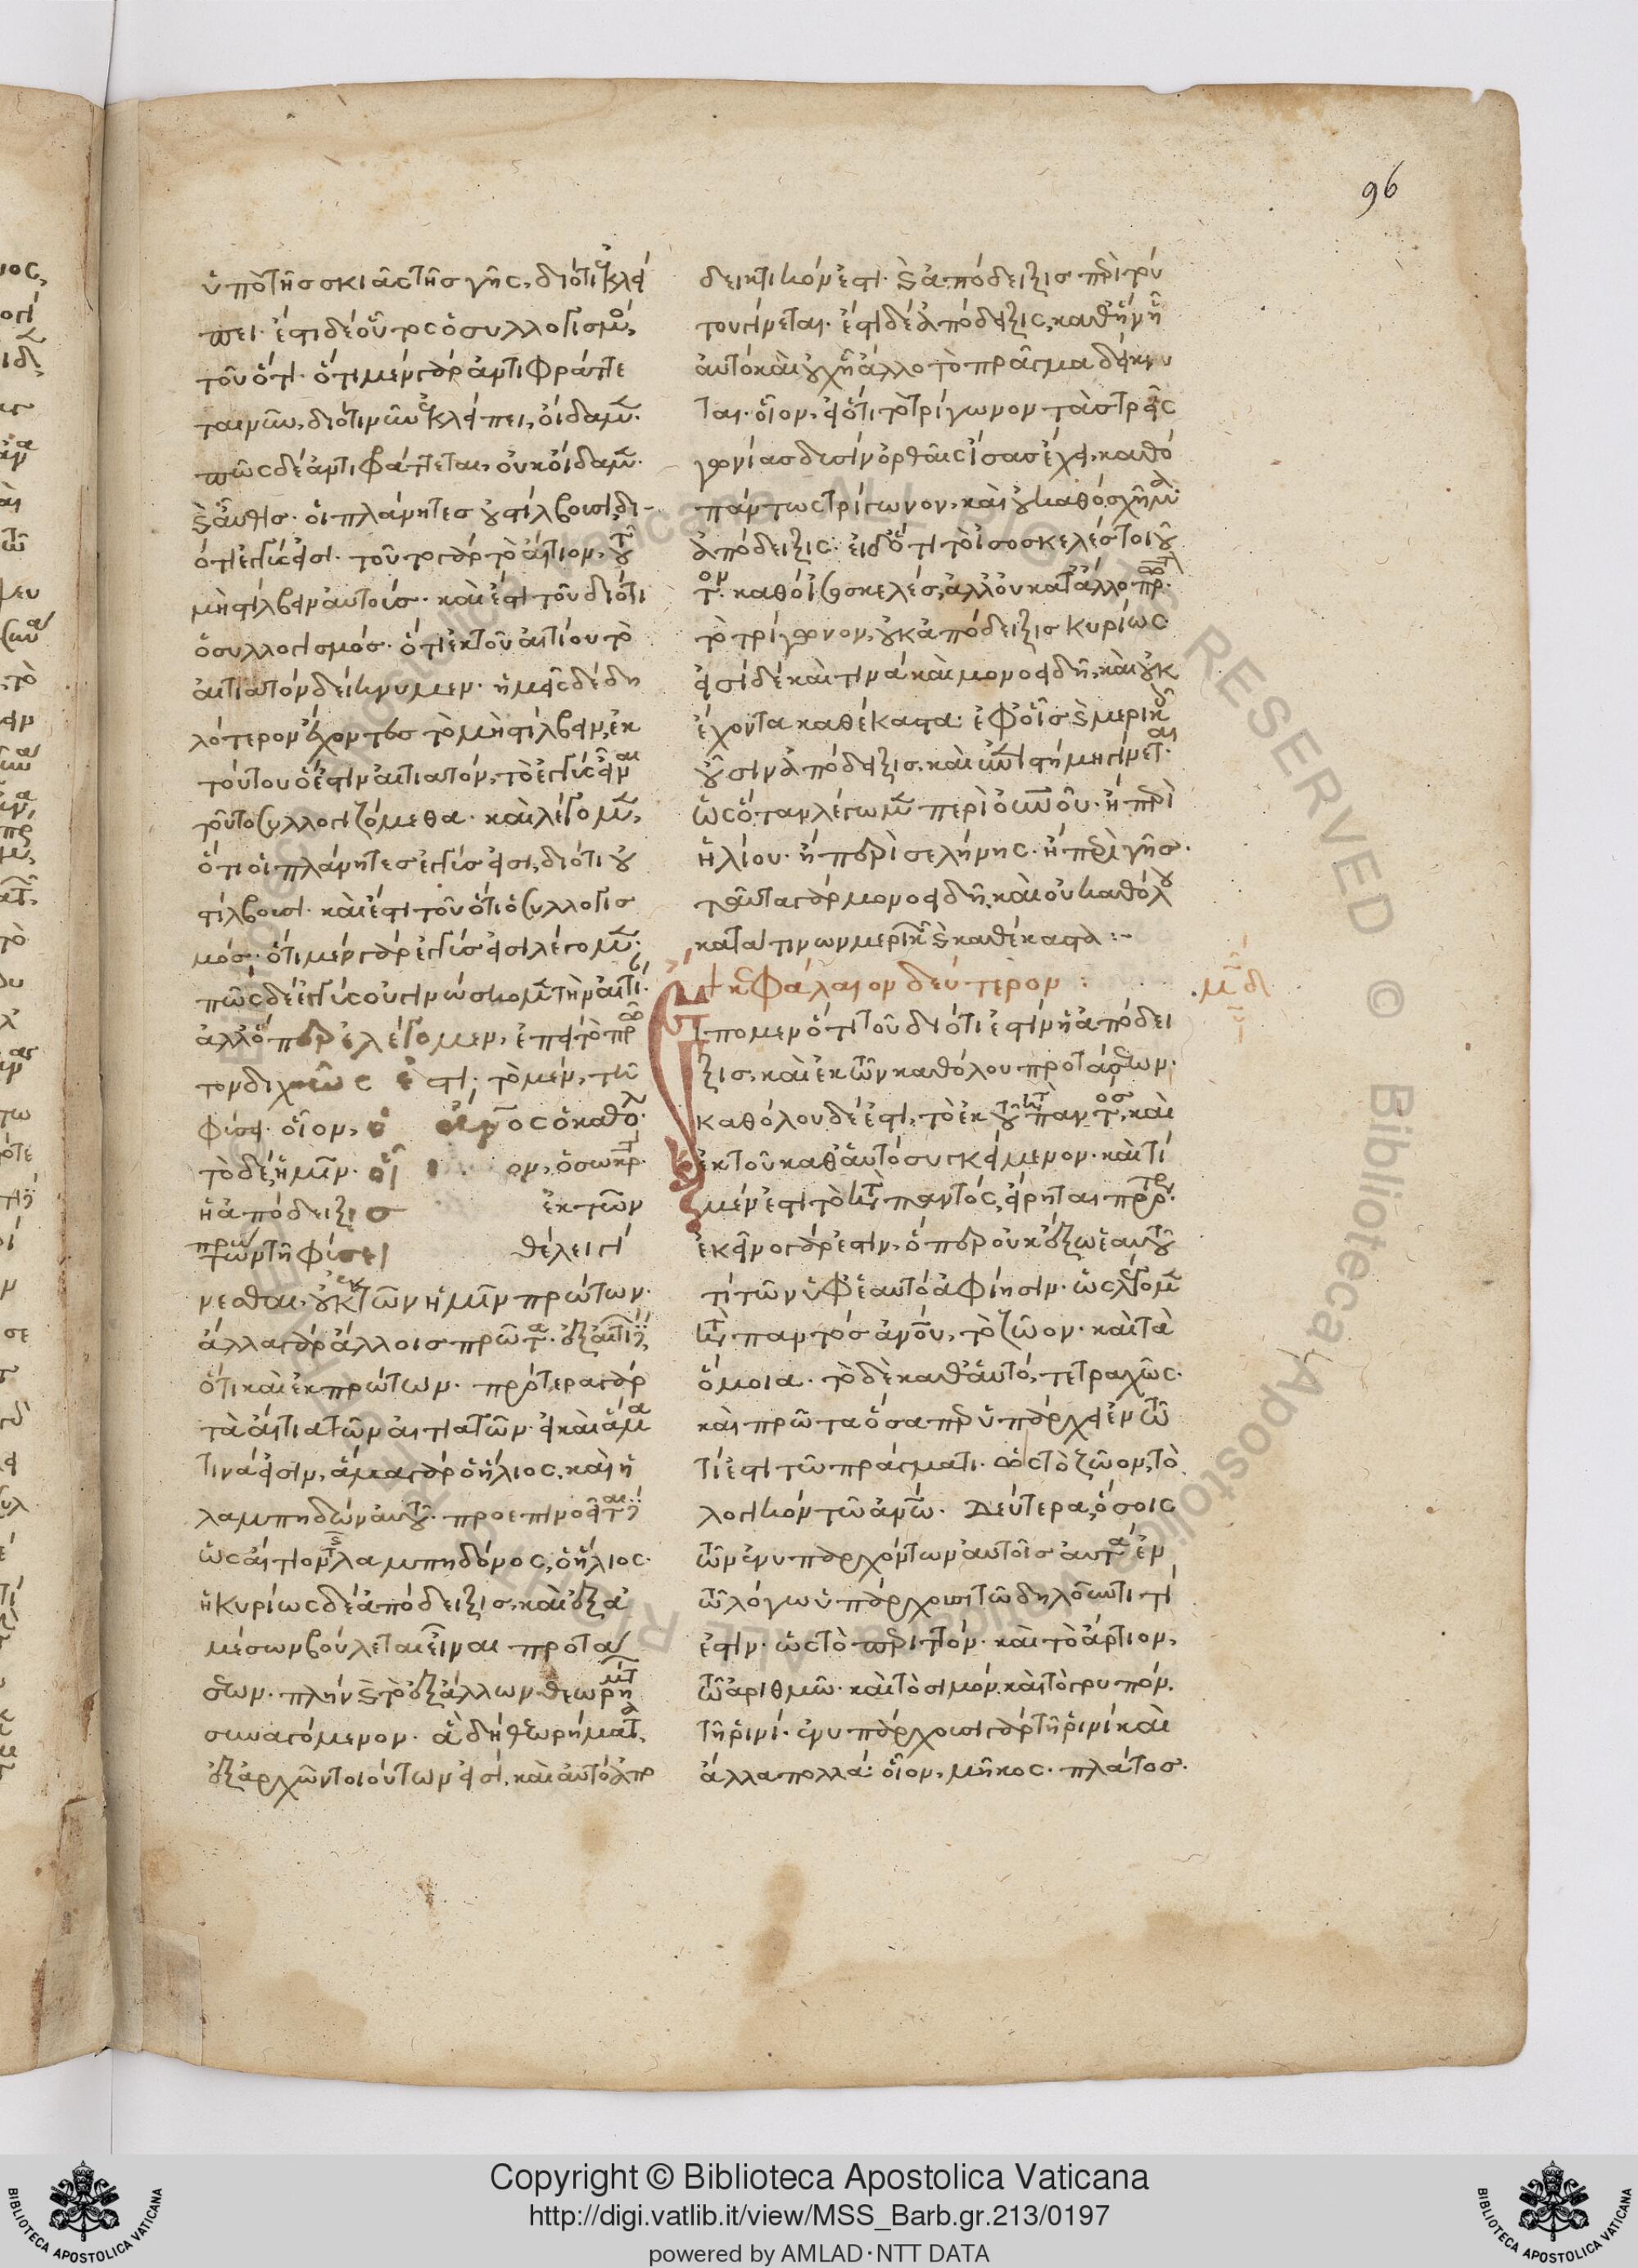 96
ὑπὸ τῆς σκιᾶς τῆς γῆς, διότι ἐκλεί
πει. ἔστι δὲ οὗτος ὁ συλλογισμός,
τοῦ ὅτι. ὅτι μὲν γὰρ ἀντιφράττε
ται νῦν, διότι νῦν ἐκλείπει, οἴδαμεν.
πῶς δὲ ἀντιφράττεται, οὐκ οἴδαμεν.
καὶ αὖθις. οἱ πλάνητες οὐ στίλβουσι, δι-
ότι ἐγγύς εἰσι. τοῦτο γὰρ τὸ αἴτιον, τοῦ
μὴ στίλβειν αὐτούς. καὶ ἔστι τοῦ διότι
ὁ συλλογισμός. ὅτι ἐκ τοῦ αἰτίου τὸ
αἰτιατὸν δείκνυμεν. ἡμεῖς δὲ δη
λότερον ἔχοντες τὸ μὴ στίλβειν, ἐκ
τούτου ὅ ἐστιν αἰτιατόν, τὸ ἐγγὺς εἶναι
τοῦτο συλλογιζόμεθα. καὶ λέγομεν,
ὅτι οἱ πλάνητες ἐγγύς εἰσι, διότι οὐ
στίλβουσι. καὶ ἔστι τοῦ ὅτι ὁ συλλογισ
μός. ὅτι μὲν γὰρ ἐγγύς εἰσι λέγομεν.
πῶς δὲ ἐγγὺς οὐ γινώσκομεν τὴν αἰτίαν.
ἀλλ' ὅπερ ἐλέγομεν, ἐπεὶ τὸ πρό
τον διχῶς ἐστι. τὸ μὲν, τῇ
φύσει. οἷον, ὁ ἄνος ὁ καθόλου.
τὸ δὲ, ἡμῖν. οἷον, ὁ σωκράτης.
ἡ ἀπόδειξις ἐκ τῶν
πρώτων τῇ φύσει θέλει γί
νεσθαι, οὐκ ἐκ τῶν ἡμῖν πρώτων.
ἄλλα γὰρ ἄλλοις πρῶτα. ἐξ αἰτίων,
ὅτι καὶ ἐκ πρώτων. πρότερα γὰρ
τὰ αἴτια τῶν αἰτιατῶν. εἰ καὶ ἅμα
τινά εἰσιν, ἅμα γὰρ ὁ ἥλιος, καὶ ἡ
λαμπηδὼν αὐτοῦ. προεπινοεῖται
ὡς αἴτιον τῆς λαμπηδόνος, ὁ ἥλιος.
ἡ κυρίως δὲ ἀπόδειξις, καὶ ἐξ ἀ
μέσων βούλεται εἶναι προτά
σεων. πλὴν καὶ τὸ ἐξ ἄλλων θεωρημάτων
συναγόμενον. ἃ δὴ θεωρήματα,
ἐξ ἀρχῶν τοιούτων εἰσί, καὶ αὐτὸ ἀπο
δεικτικόν ἐστι. καὶ ἀπόδειξις περὶ τού
του γίνεται. ἔστι δὲ ἀπόδειξις, καθ' ἣν ᾖ
αὐτὸ καὶ οὐχ ᾗ ἄλλο τὸ πρᾶγμα δείκνυ
ται. οἷον, εἰ ὅτι τὸ τρίγωνον τὰς τρεῖς
γωνίας δυσὶν ὀρθαῖς ἴσας ἔχει, καθὸ
πάντως τρίγωνον, καὶ οὐ καθὸ σχῆμα
ἀπόδειξις. εἰ δ' ὅτι τὸ ἰσοσκελὲς τοιοῦ
τον. καθὸ ἰσοσκελές, ἀλλ' οὐ κατ' ἄλλο πρῶτον
τὸ τρίγωνον, οὐκ ἀπόδειξις κυρίως
εἰσὶ δὲ καί τινα καὶ μονοειδῆ, καὶ οὐκ
ἔχοντα καθέκαστα. ἐφ' οἷς καὶ μερικῶν
οὖσιν ἀπόδειξις, καὶ ἐπιστήμη γίνεται.
ὡς ὅταν λέγωμεν περὶ οὐνοῦ. ἢ περὶ
ἡλίου. ἢ περὶ σελήνης. ἢ περὶ γῆς.
ταῦτα γὰρ μονοειδῆ, καὶ οὐ καθόλου
κατά τινων μερικῶν καὶ καθέκαστα :-
κεφάλαιον δεύτερον :
Εἴπομεν ὅτι τοῦ διότι ἐστὶν ἡ ἀπόδει
ξις, καὶ ἐκ τῶν καθόλου προτάσεων.
καθόλου δέ ἐστι, τὸ ἐκ τοῦ κατὰ παντός, καὶ
ἐκ τοῦ καθ' αὑτὸ συγκείμενον. καὶ τί
μέν ἐστι τὸ κατὰ παντός, εἴρηται πρότερον.
ἐκεῖνο γάρ ἐστιν, ὅπερ οὐκ ἔξω ἑαυτοῦ
τὶ τῶν ὑφ' ἑαυτὸ ἀφίησιν. ὡς λέγομεν
κατὰ παντὸς ἀνου, τὸ ζῶον. καὶ τὰ
ὅμοια. τὸ δὲ καθ' αὑτό, τετραχῶς.
καὶ πρῶτα ὅσα περ ὑπάρχει ἐν τῷ
τί ἐστι τῷ πράγματι. ὡς τὸ ζῶον, τὸ
λογικὸν τῷ ἀνω. Δεύτερα, ὅσοις
τῶν ἐνυπαρχόντων αὐτοῖς αὐτὰ ἐν
τῷ λόγῳ ὑπάρχουσι τῷ δηλοῦντι τί
ἐστιν. ὡς τὸ περιττόν. καὶ τὸ ἄρτιον,
τῷ ἀριθμῷ. καὶ τὸ σιμόν. καὶ τὸ γρυπόν.
τῇ ῥινί. ἐνυπάρχουσι γὰρ τῇ ῥινὶ καὶ
ἄλλα πολλά. οἷον, μῆκος. πλάτος.
Copyright © Biblioteca Apostolica Vaticana
http://digi.vatlib.it/view/MSS_Barb.gr.213/0197
powered by AMLAD·NTT DATA